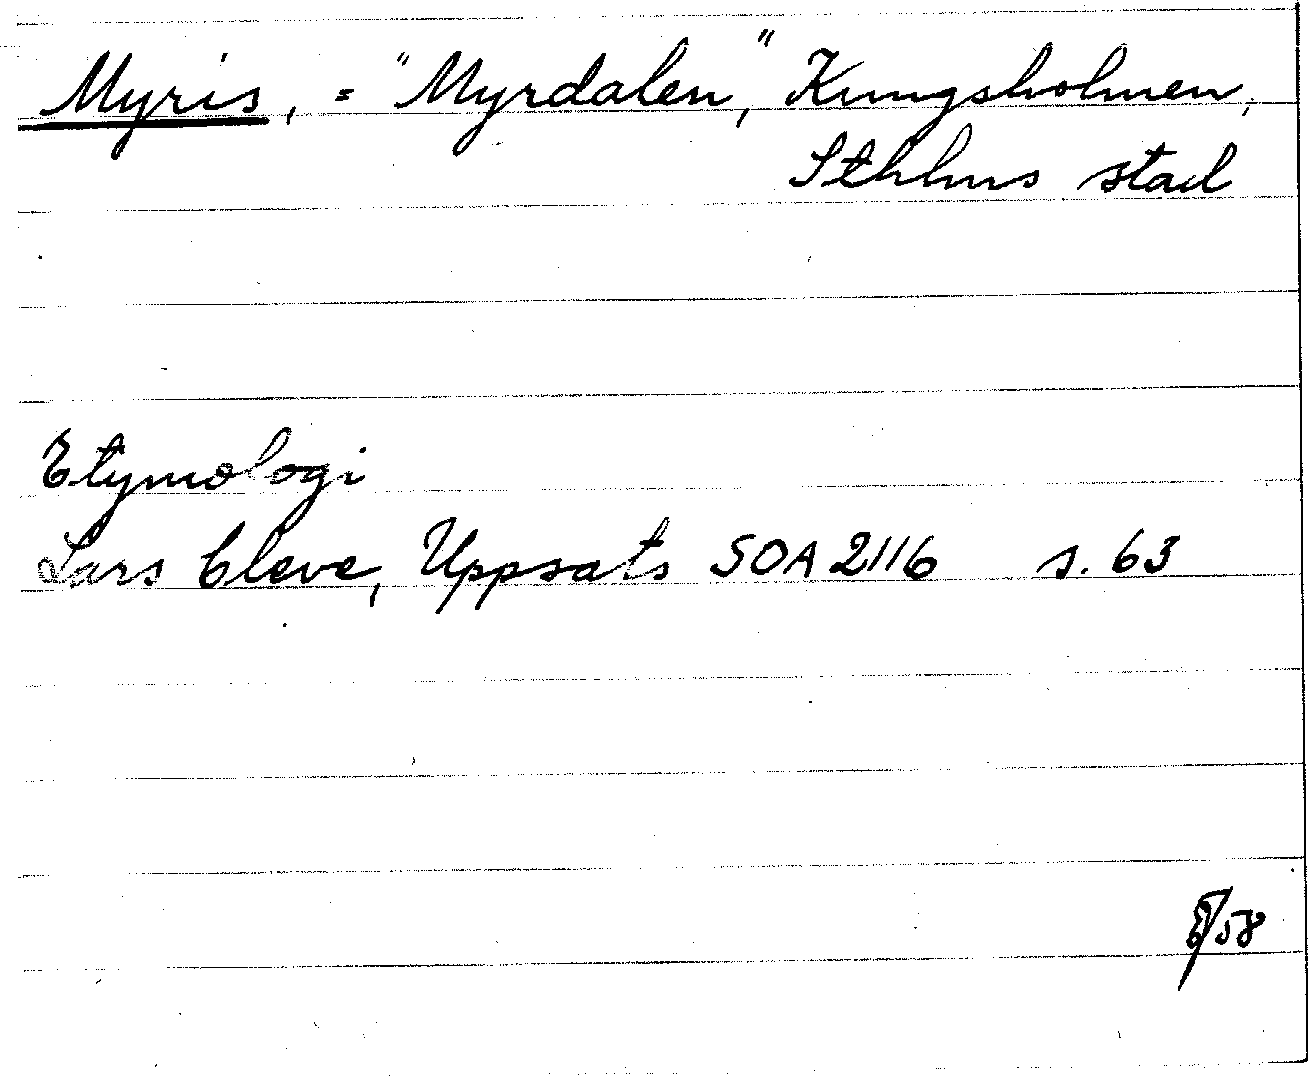 Myris, = "Myrdalen," Kungsholmen,
Sthlms stad
Etymologi
Lars Cleve, Uppsats SOA 2116 s. 63
/58